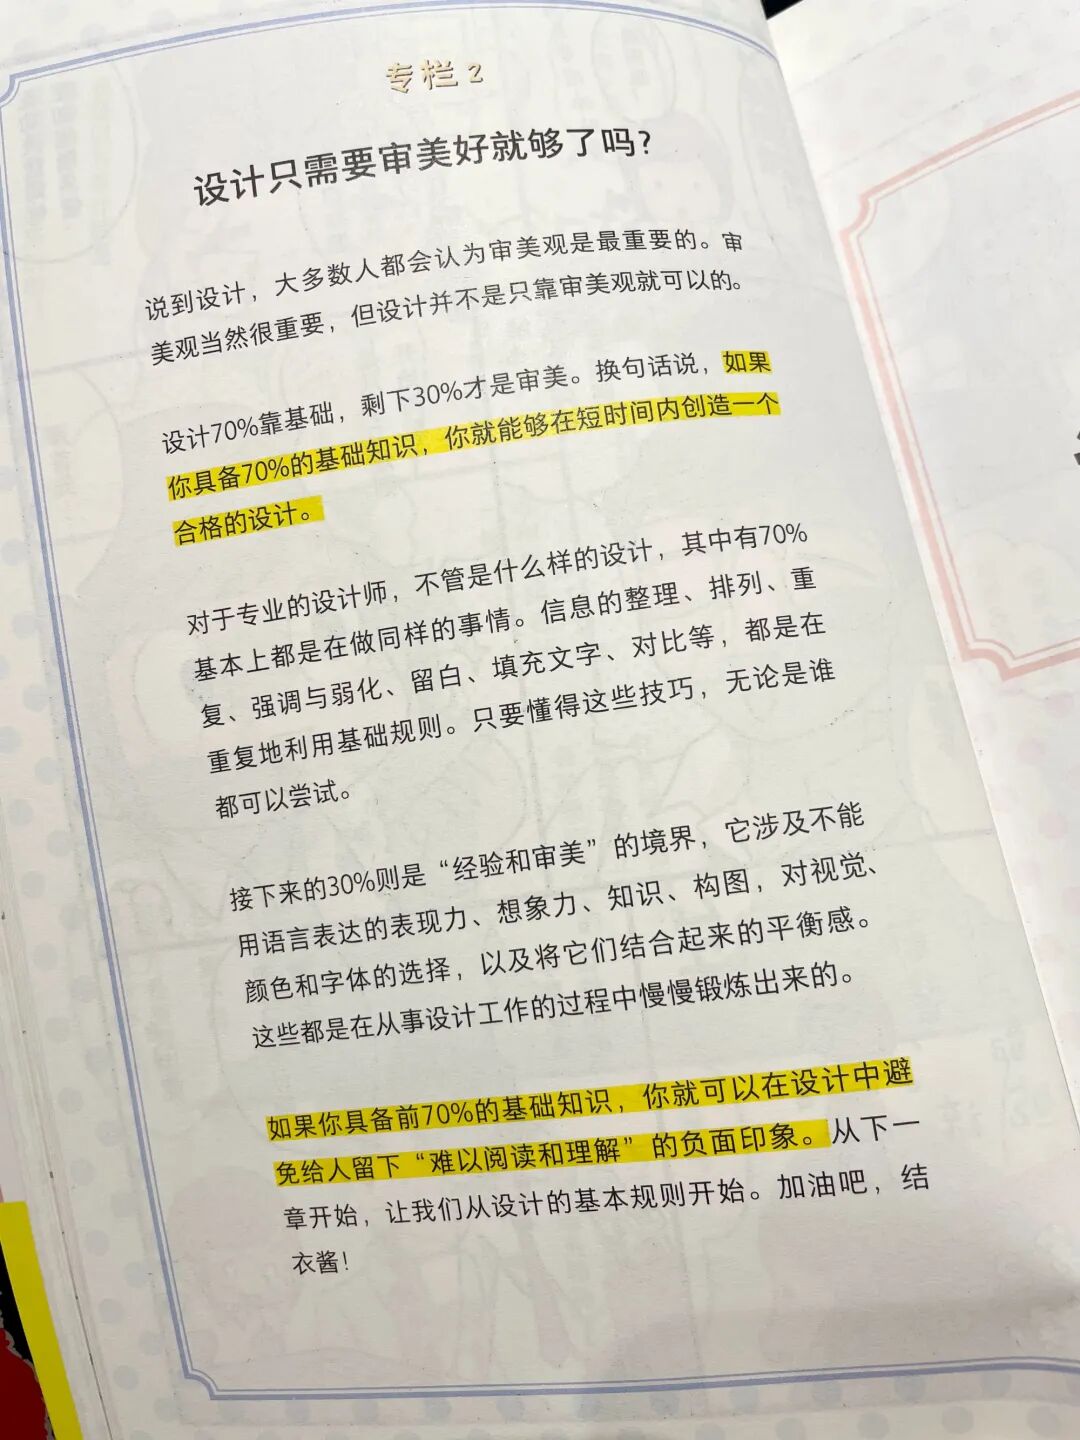 专栏 2
设计只需要审美好就够了吗？
说到设计，大多数人都会认为审美观是最重要的。审
美观当然很重要，但设计并不是只靠审美观就可以的。
设计70%靠基础，剩下30%才是审美。换句话说，如果
你具备70%的基础知识，你就能够在短时间内创造一个
合格的设计。
对于专业的设计师，不管是什么样的设计，其中有70%
基本上都是在做同样的事情。信息的整理、排列、重
复、强调与弱化、留白、填充文字、对比等，都是在
重复地利用基础规则。只要懂得这些技巧，无论是谁
都可以尝试。
接下来的30%则是“经验和审美”的境界，它涉及不能
用语言表达的表现力、想象力、知识、构图，对视觉、
颜色和字体的选择，以及将它们结合起来的平衡感。
这些都是在从事设计工作的过程中慢慢锻炼出来的。
如果你具备前70%的基础知识，你就可以在设计中避
免给人留下“难以阅读和理解”的负面印象。从下一
章开始，让我们从设计的基本规则开始。加油吧，结
衣酱！